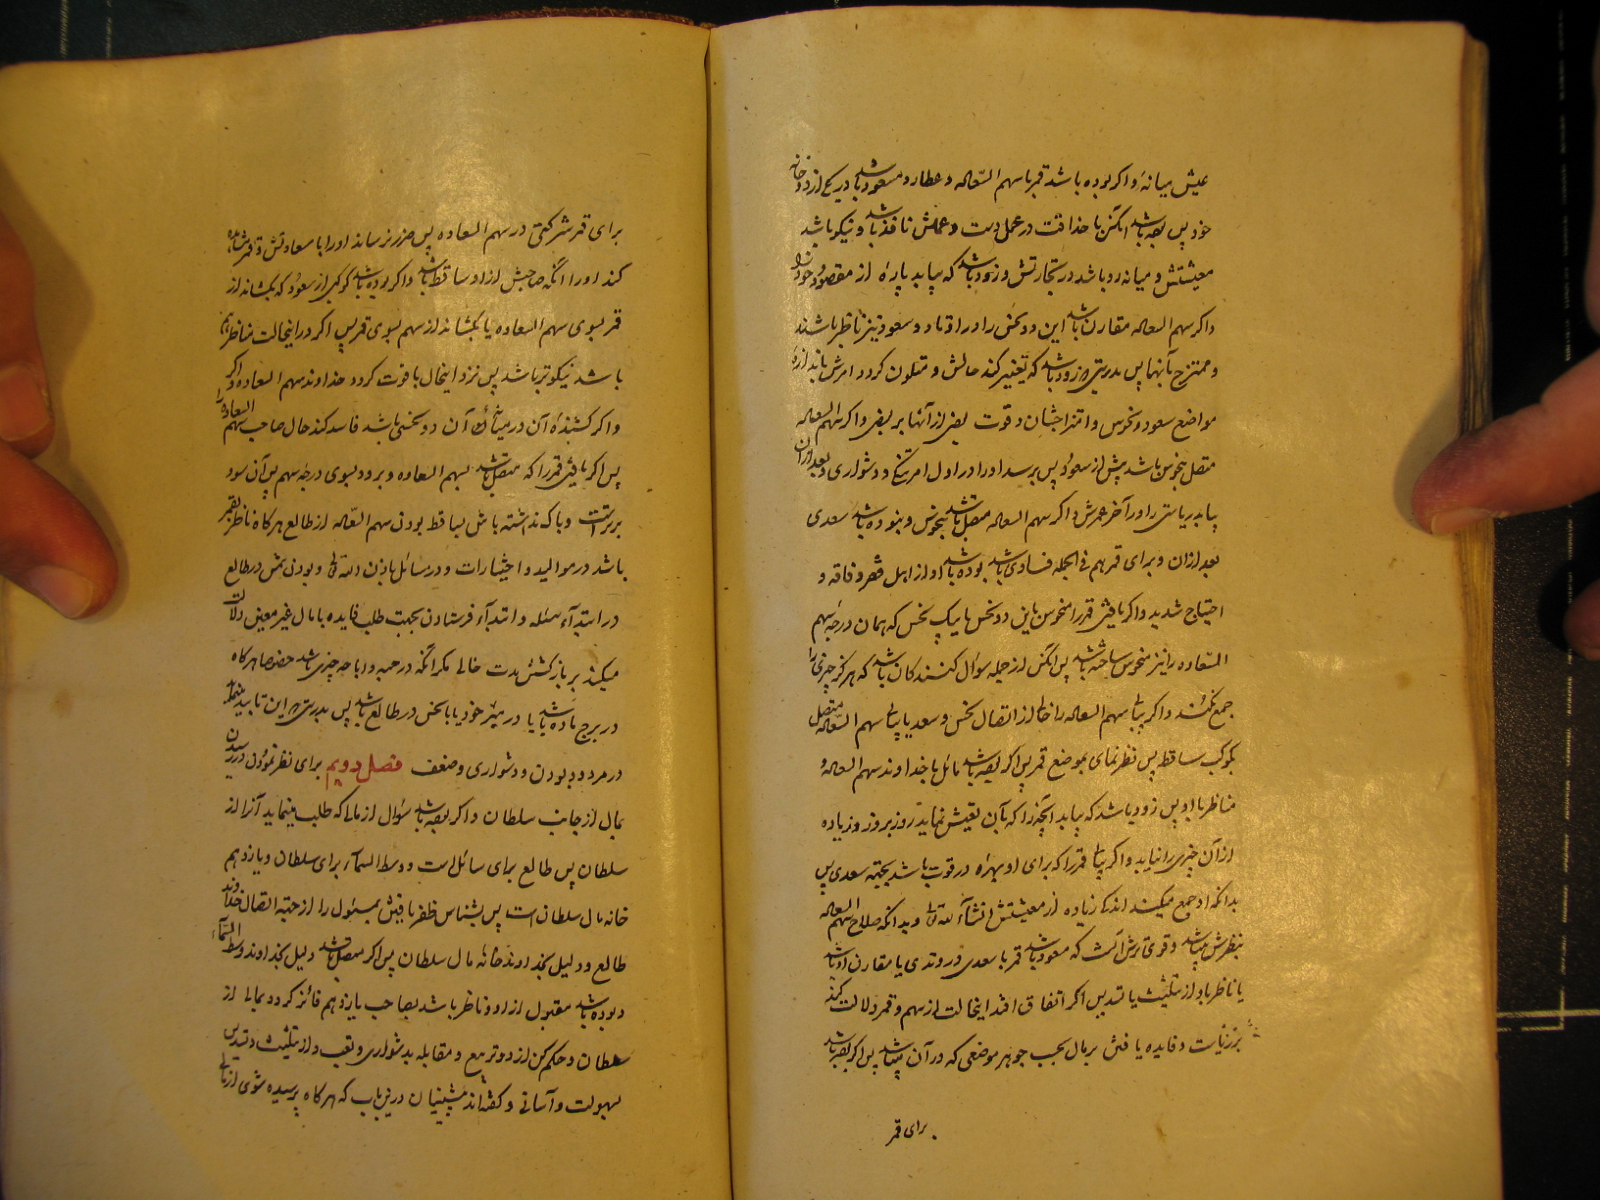 عیش میانهٔ و اکر بوده باشد قمر با سهم السّعاله و عطارد مسعود باشد در یکی از دو خانه
خود پس بوده باشد آنکس با حذاقت در عمل دست و عملش نافذ باشد و نیکو باشد
معیشتش و میانه رو باشد در تجارتش و زود باشد که بیابد پارهٔ از مقصود خود
و اکر سهم السعاله مقارن باشد این دو نحس را در اوتاد و سعود نیز ناظر باشند
و ممتزج بآنها پس بدرستی زود باشد که تغییر کند حالش و متلون کردد امرش باندازهٔ
مواضع سعود و نحوس و امتزاجشان و قوت بعضی از آنها بر بعضی و اکر سهم السعاله
متصل بنحوس باشد پیش از سعود پس برسد او را در اول امر تنکی و دشواری و بعد از آن
بیابد ریاستی را در آخر عمرش و اکر سهم السعاله متصل باشد بنحوس و نبوده باشد سعدی
بعد از ان و برای قمر هم فی الجمله فسادی باشد بوده باشد او از اهل فقر و فاقه و
احتیاج شدید و اکر یافتی قمر را منحوس باین دو نحس یا بیک نحس که همان درجهٔ سهم
السّعاده را نیز منحوس ساخته باشد پس آنکس از جمله سؤال کنندکان باشد که هرکز چیزی را
جمع نکند و اکر بیابی سهم السعاله را خالی از اتصال نحس و سعد یا بیابی سهم السّعاله متصل
بکوکب ساقط پس نظر نمای بموضع قمر پس اکر بوده باشد مائل یا خداوند سهم السعاله و
مناظر با او پس زود باشد که بیابد آنچه را که بآن تعیش نماید روز بروز و زیاده
از آن چیزی را نیابد و اکر بیابی قمر را که برای او بهرهٔ در قوت باشد بجهة سعدی پس
بدانکه او جمع میکند اندکی زیاده از معیشتش انشآء الله تعالی و بدانکه صلاح سهم السعاله
بنظرش میباشد و قوی ترش آنست که مسعود باشد قمر با سعدی در وتدی یا مقارن او باشد
یا ناظر باو از تثلیث یا تسدیس اکر اتفاق افتد اینحالت از سهم و قمر دلالت کند
بر زیادت و فایده یافتن بر مال بحسب جوهر موضعی که در آن میباشد پس اکر بوده باشد
برای قمر
برای قمر شرکتی در سهم السعاده پس ضرر نرساند او را با سعادتش و قمر مشاهده
کند او را آنکه صاحبش از او ساقط باشد و اکر بوده باشد کوکبی از سعود که بکشاند از
قمر بسوی سهم السعاده یا بکشاند از سهم بسوی قمر پس اکر در اینحالت مناظر هم
باشد نیکوتر باشد پس نزد اینحال با قوت کردد خداوند سهم السعاده و اکر
و اکر کشندهٔ آن در میانهٔ آن دو نحسی باشد فاسد کند حال صاحب سهم السعاده را
پس اکر یافتی قمر را که متصل باشد بسهم السعاده و برود بسوی درجهٔ سهم پس آن سود
برتر است و باک نداشته باش بساقط بودن سهم السّعاله از طالع هرکاه ناظر بقمر
باشد در موالید و اختیارات و در مسائل باذن الله تعالی و بودن شمس در طالع
در ابتدآء مسئله و ابتدآء فرستادن بجهت طلب فایده یا مال غیر معین دلالت
میکند بر بازکشتن بدست خالی مکر آنکه در حمیه و اباحه چیزی باشد خصوصا هرکاه
در برج ماده باشد یا در هبوط خود یا با نحس در طالع باشد پس بدرستی این تایید مینماید
در مردود بودن و دشواری و ضعف فصل دویم برای نظر نمودن در رسیدن
بمال از جانب سلطان و اکر بوده باشد سؤال از مالی که طلب مینماید آنرا از
سلطان پس طالع برای سائل است و وسط السمآء برای سلطان و یازدهم
خانه مال سلطان است پس بشناس ظفر یافتن بمسئول را از جهة اتصال خداوند
طالع و دلیل بخداوند خانهٔ مال سلطان پس اکر متصل باشد دلیل بخداوند وسط السّمآء
و بوده باشد مقبول از او و ناظر باشد بصاحب یازدهم فائز کردد بمالی از
سلطان و حکم کن از دو تربیع و مقابله بدشواری و تعب و از تثلیث و تسدیس
بسهولت و آسانی و کفته اند پیشینیان درین باب که هرکاه پرسیده شوی از مالی